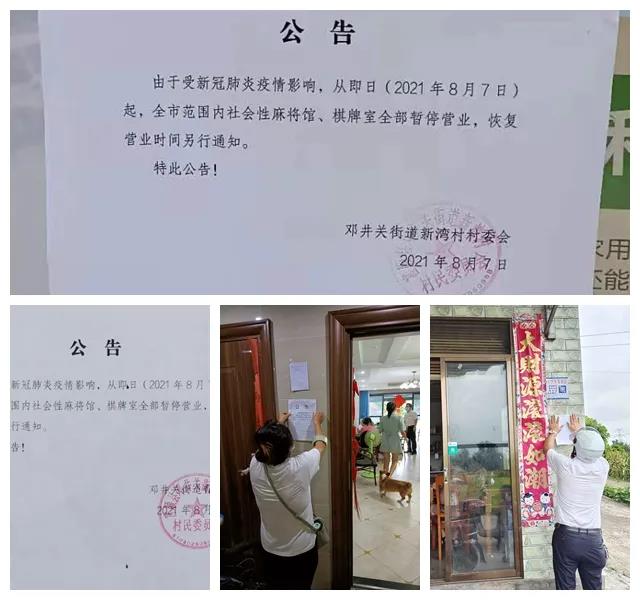 公 告
由于受新冠肺炎疫情影响，从即日（2021年8月7日）
起，全市范围内社会性麻将馆、棋牌室全部暂停营业，恢复
营业时间另行通知。
特此公告！
邓井关街道新湾村村委会
2021年8月7日
村民委员会
家用
还能
公 告
新冠肺炎疫情影响，从即日（2021年8月
国内社会性麻将馆、棋牌室全部暂停营业，
行通知。
告！
邓井关街道
2021年8月
村民委员
大财源滚滚如潮